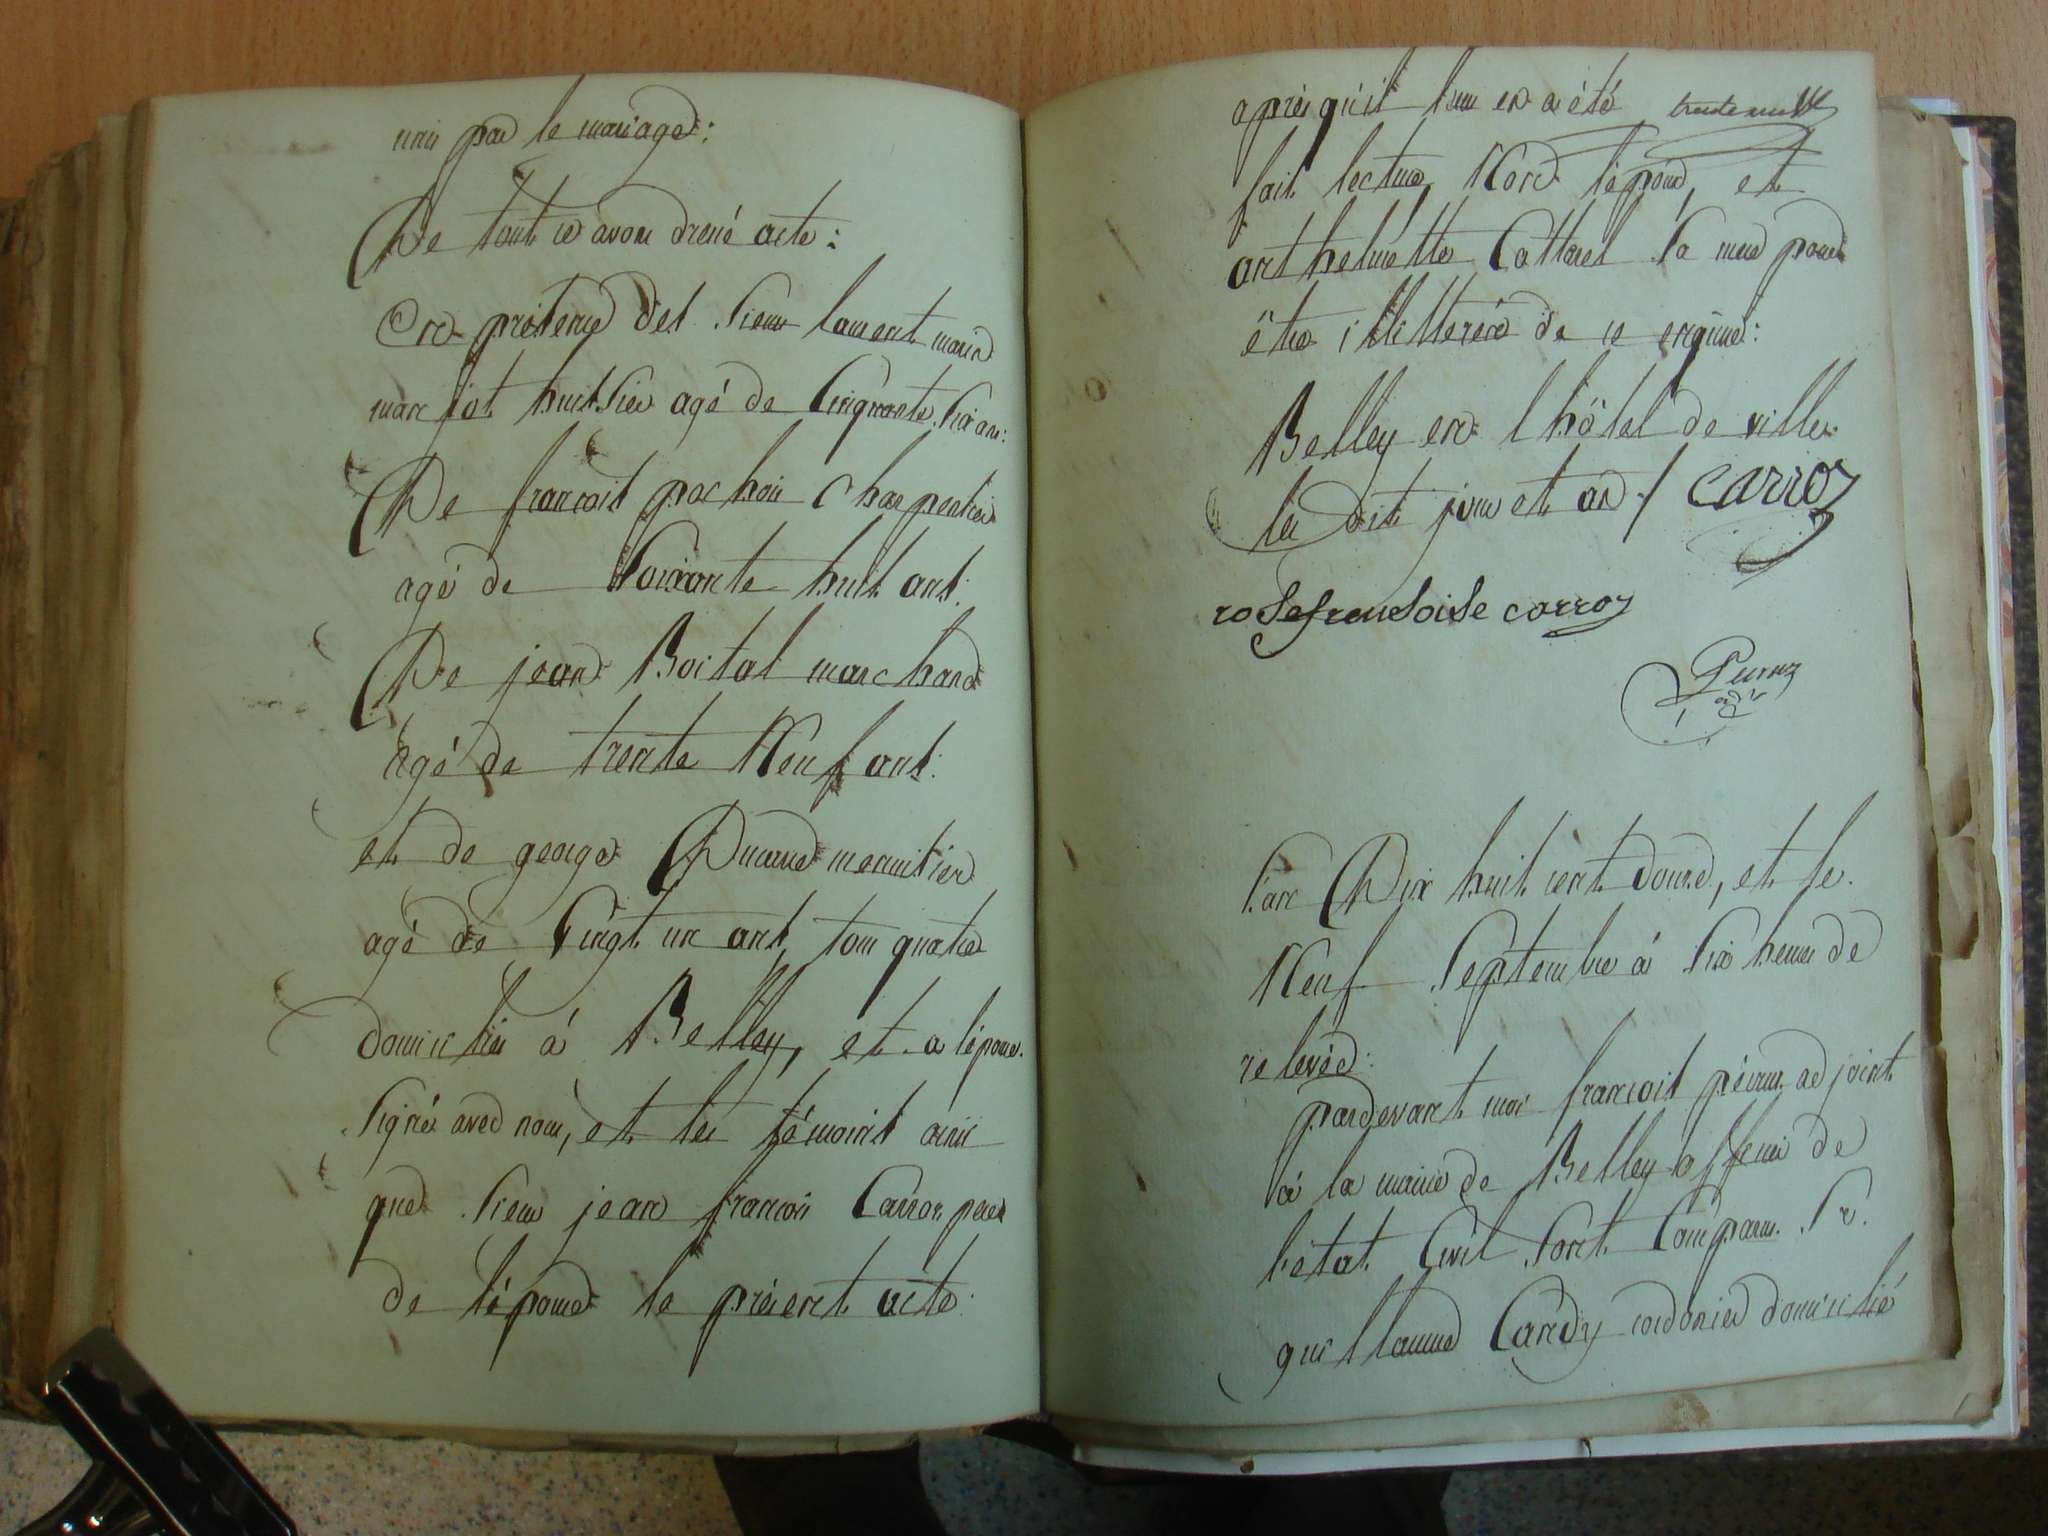 unis par le mariage:
De tout ce avons dressé acte:
En présence des Sieur laurent marie
marjot huissier agé de Cinquante Six ans:
De francois pochoin Charpentier
agé de Soixante huit ans:
De jean Boital marchand
agé de trente Neuf ans:
et de george Durand menuisier
agé de Vingt un ans, tous quatre
domicilies à Belley, et a lépouse
Signé avec nous, et les témoins ainsi
que Sieur jean francois Carron pere
de lépouse le présent acte:
après quil leur en a été
fait lecture, Non lépoux, et
anthelmette Cottarel Sa mere pour
être illitterés de ce enquis:
Belley en l hôtel de ville
les dits jour et an / carroz
rose francoise carroz
Peroux
adjt
L'an Dix huit cent douze, et le
Neuf Septembre à Six heures de
relevée:
pardevant moi francois péroux adjoint
à la mairie de Belley officier de
l'état Civil Sont Comparus Sr.
guillaume Candy cordonier domicilié